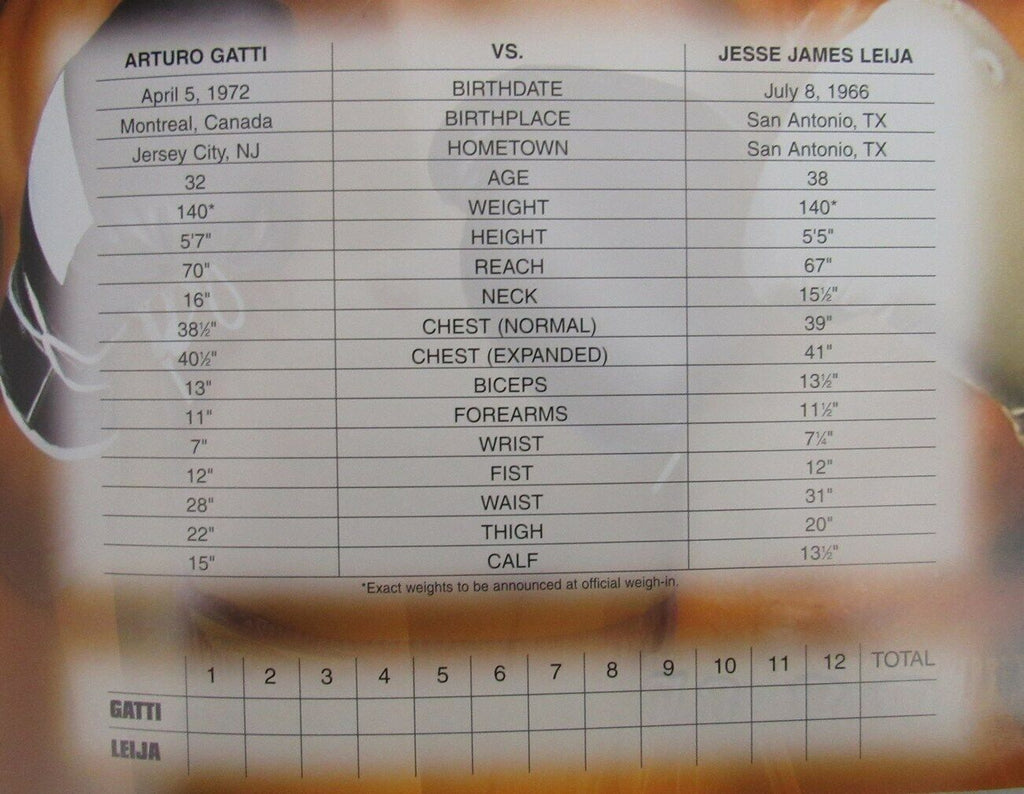 ARTURO GATTI VS. JESSE JAMES LEIJA
April 5, 1972 BIRTHDATE July 8, 1966
Montreal, Canada BIRTHPLACE San Antonio, TX
Jersey City, NJ HOMETOWN San Antonio, TX
32 AGE 38
140* WEIGHT 140*
5'7" HEIGHT 5'5"
70" REACH 67"
16" NECK 15½"
38½" CHEST (NORMAL) 39"
40½" CHEST (EXPANDED) 41"
13" BICEPS 13½"
11" FOREARMS 11½"
7" WRIST 7¼"
12" FIST 12"
28" WAIST 31"
22" THIGH 20"
15" CALF 13½"
*Exact weights to be announced at official weigh-in.
1 2 3 4 5 6 7 8 9 10 11 12 TOTAL
GATTI
LEIJA